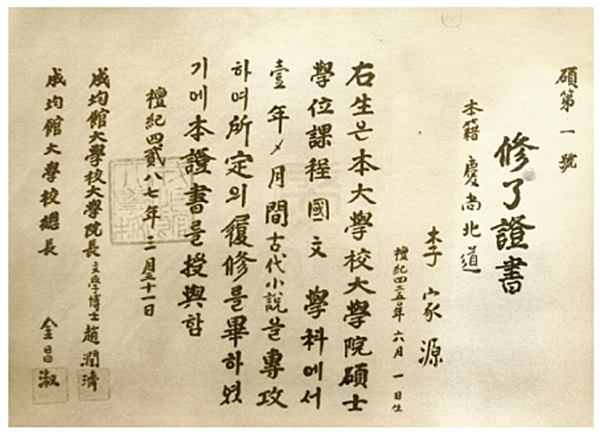 碩第一號
修了證書
本籍 慶尙北道
李家源
檀紀四二五〇年六月 一日生
右生은本大學校大學院碩士
學位課程國文 學科에서
壹年 月間古代小說을專攻
하여所定의履修를畢하였
기에本證書를授與함
檀紀四貳八七年三月三十一日
成均館大學校大學院長 文學博士 趙潤濟
成均館大學校總長 金昌淑